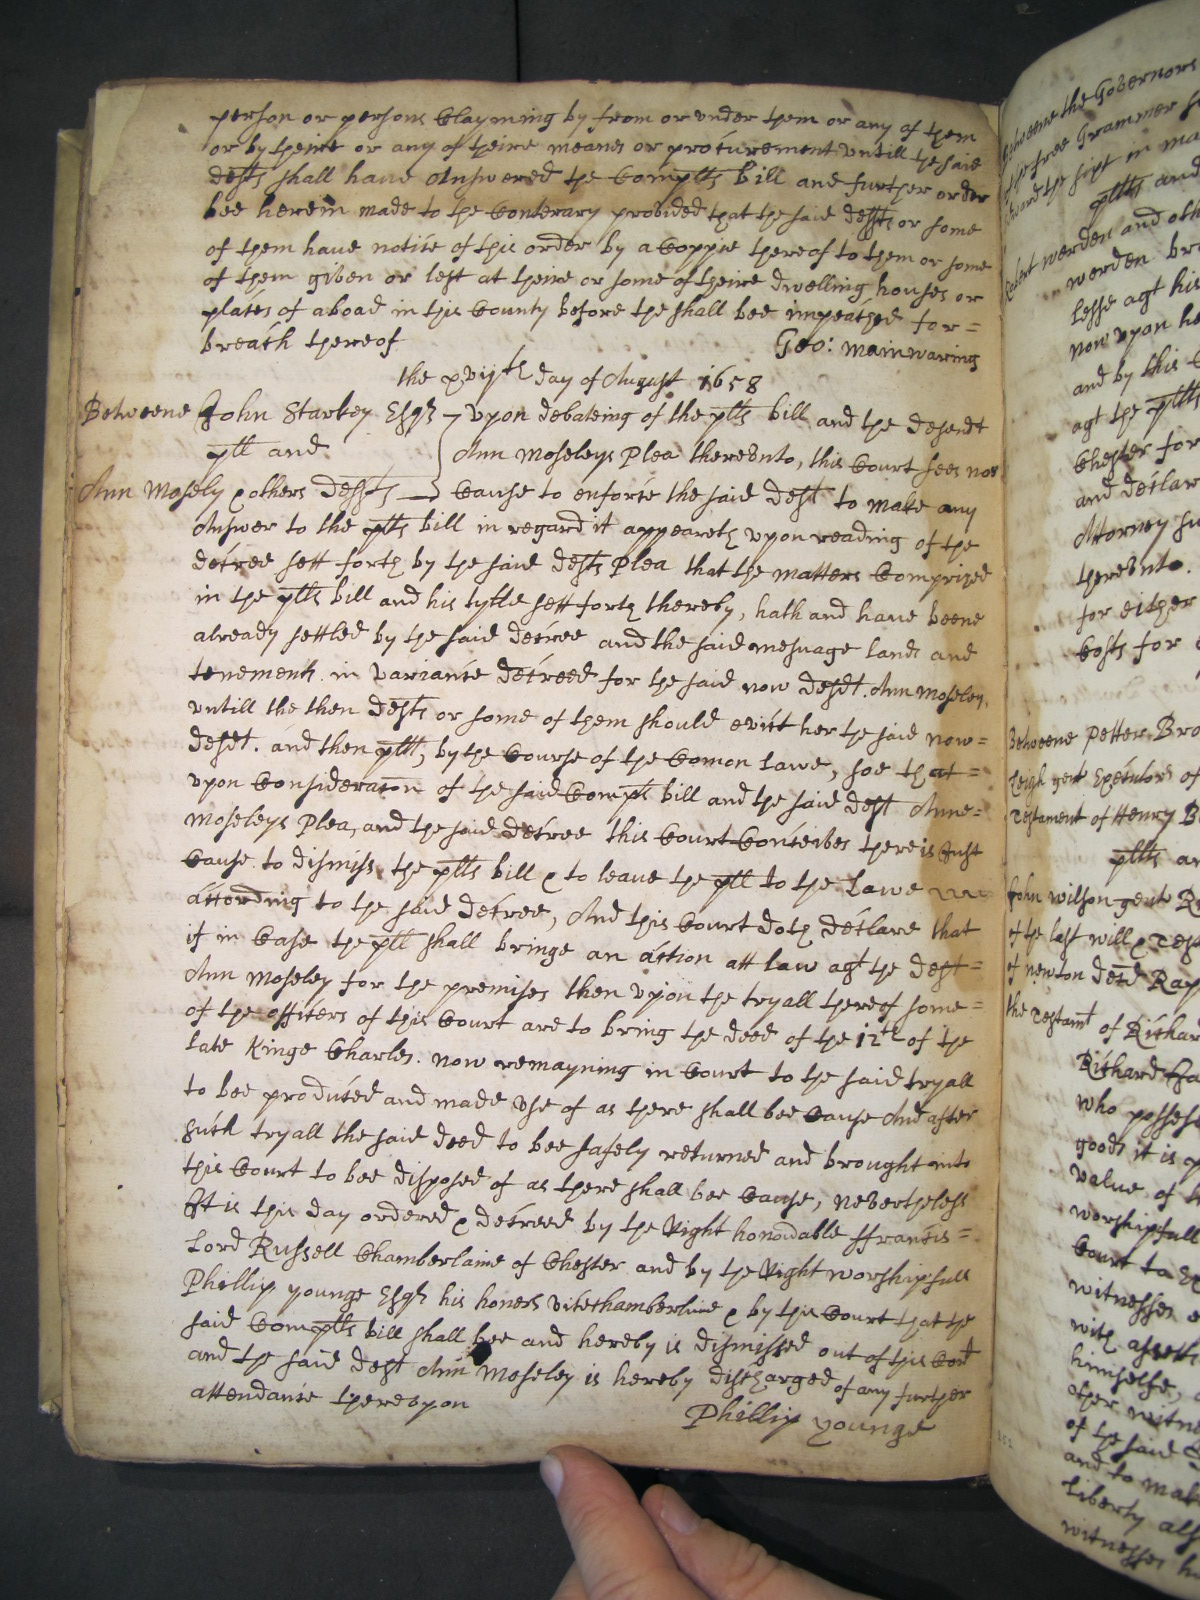 person or persons Clayming by from or vnder them or any of them
or by theire or any of theire meanes or procurement vntill the said
defts shall have Answered the Complts bill and further order
bee herein made to the Conterary provided that the said defts or some
of them have notice of this order by a Coppie thereof to them or some
of them given or left at theire or some of theire dwelling houses or
places of aboad in this County before the shall bee impeached for=
breach thereof
Geo: mainwaring
the xviith day of August 1658
Betweene John Starkey Esqr vpon debateing of the plts bill and the defendt
plt and Ann Moseleys Plea therevnto, this Court sees noe
Ann Mosely & others Defts Cause to enforce the said deft to make any
Answer to the plts bill in regard it appeareth vpon reading of the
decree sett forth by the said defts Plea that the matters Comprized
in the plts bill and his tytle sett forth thereby, hath and have beene
already settled by the said decree and the said mesuage lands and
tenements in variance decreed for the said now defdt. Ann Moseley,
vntill the then defts or some of them should evict her the said now=
defdt. and then pltt, by the Course of the Comon Lawe, soe that=
vpon Consideracon of the said Complts bill and the said deft Anne=
Moseleys Plea, and the said decree this Court Conceives there is Just
Cause to dismiss the pltts bill & to leave the plt to the Lawe
according to the said decree, And this Court doth declare that
if in Case the plt shall bringe an action att law agt the deft=
Ann Moseley for the premises then vpon the tryall thereof some=
of the officers of this Court are to bring the deed of the 12th of the
late Kinge Charles now remayning in Court to the said tryall
to bee produced and made vse of as there shall bee Cause And after
such tryall the said deed to bee safely returned and brought into
this Court to bee disposed of as there shall bee Cause, nevertheless
It is this day ordered & decreed by the Right honorable ffrancis=
Lord Russell Chamberlaine of Chester and by the Right worshipfull
Phillip younge Esqr his honors vicechamberline & by this Court that the
said Complts bill shall bee and hereby is dismissed out of this Cort
and the said deft Ann Moseley is hereby discharged of any further
attendance therevpon
Phillip younge
Betweene the Governors
of the free Grammer
pltts and
worden
Lesse agt his
now vpon
and by this
agt the pltts
Chester for
and declar
Attorney
therevnto.
for either
Costs for
Betweene Petter Bro
Leigh gent Executors of
Testament of Henry
pltts
John wilson gent
of the last will & Test
of newton decd Rap
the Testamt of Richar
Richard
who possess
goods it is
value of
worshipfull
Court to
witnesses
with assetts
himselfe,
other witn
of the said
and to mak
Liberty als
witnesses